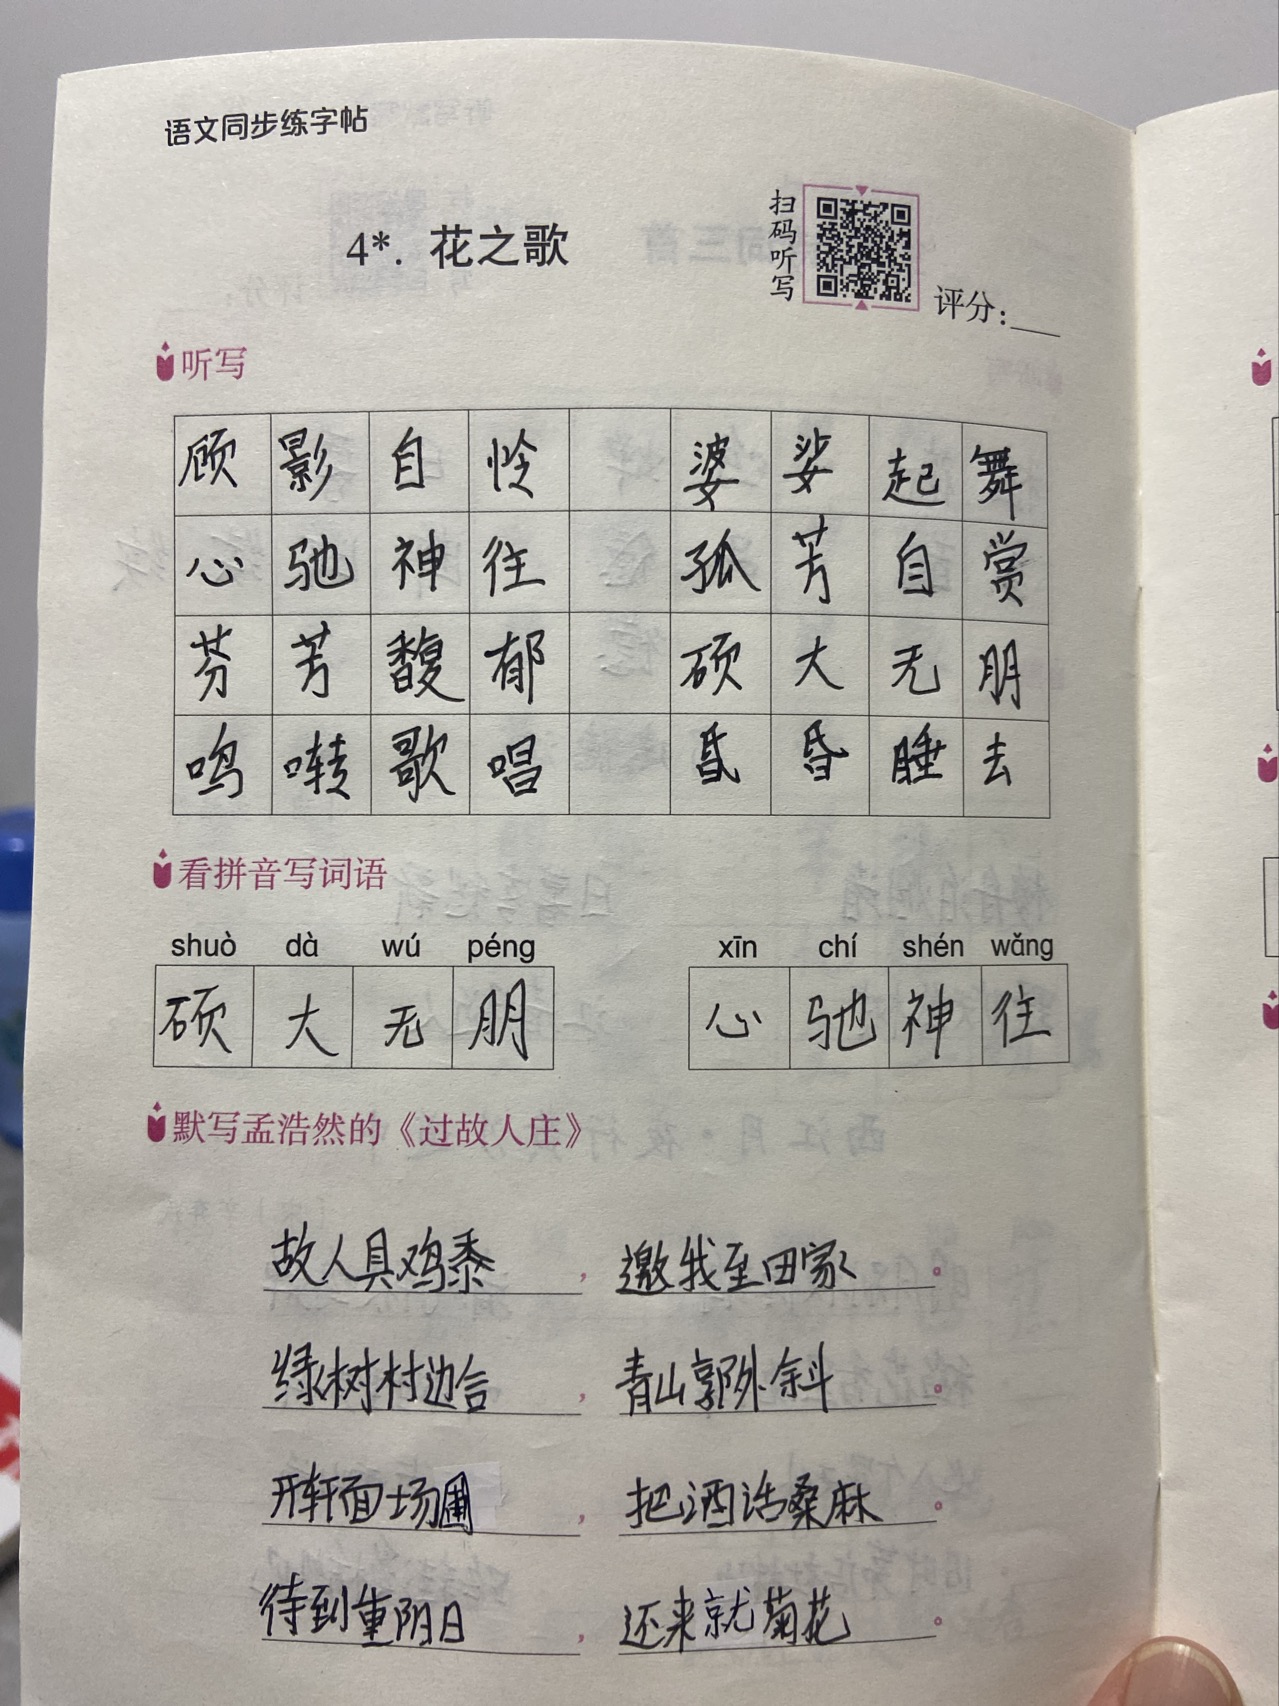 语文同步练字帖
4*. 花之歌
扫码听写
评分:
听写
顾影自怜 婆娑起舞
心驰神往 孤芳自赏
芬芳馥郁 硕大无朋
鸣啭歌唱 昏昏睡去
看拼音写词语
shuò dà wú péng xīn chí shén wǎng
硕大无朋 心驰神往
默写孟浩然的《过故人庄》
故人具鸡黍，邀我至田家。
绿树村边合，青山郭外斜。
开轩面场圃，把酒话桑麻。
待到重阳日，还来就菊花。